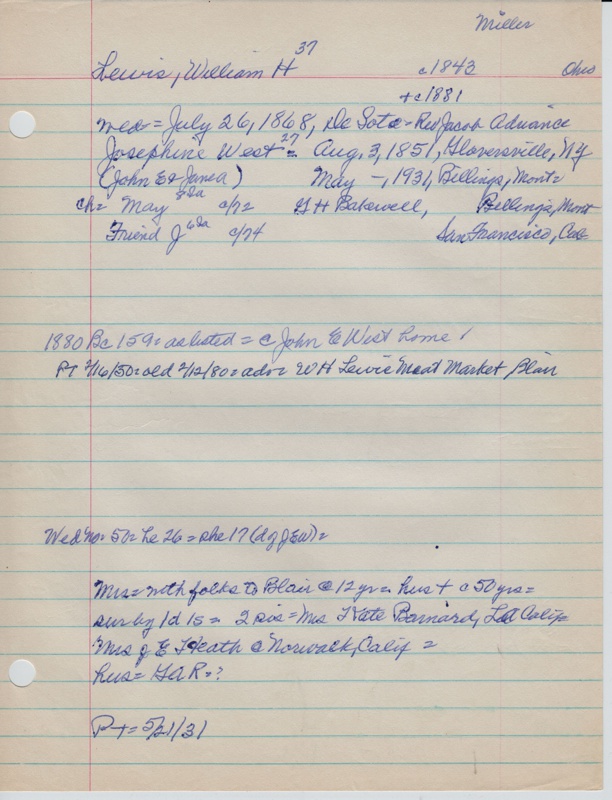 Miller
Lewis, William H 37 c1843 Ohio
+c1881
med = July 26, 1868, De Soto = Rev Jacob Advance
Josephine West 27 = Aug. 3, 1851, Gloversville, NY
(John E & Jane a) May —, 1931, Billings, Mont =
ch = May 52a c/72 G H Bakewell, Billings, Mont
Friend J 62a c/74 San Francisco, Cal
1880 Bc 159 = as listed = c John E West home
PT 2/16/50 = old 2/12/80 = adv = W H Lewis Meat Market Blair
Wed No = 50 = he 26 = she 17 (dg JEW) =
Mrs = with folks to Blair @ 12 yr = hus + c 50 yrs =
sur by 1d 1s = 2 sis = Mrs Kate Barnard, LA Calif =
Mrs J E Heath @ Norwalk, Calif =
hus = GAR = ?
PT = 5/21/31